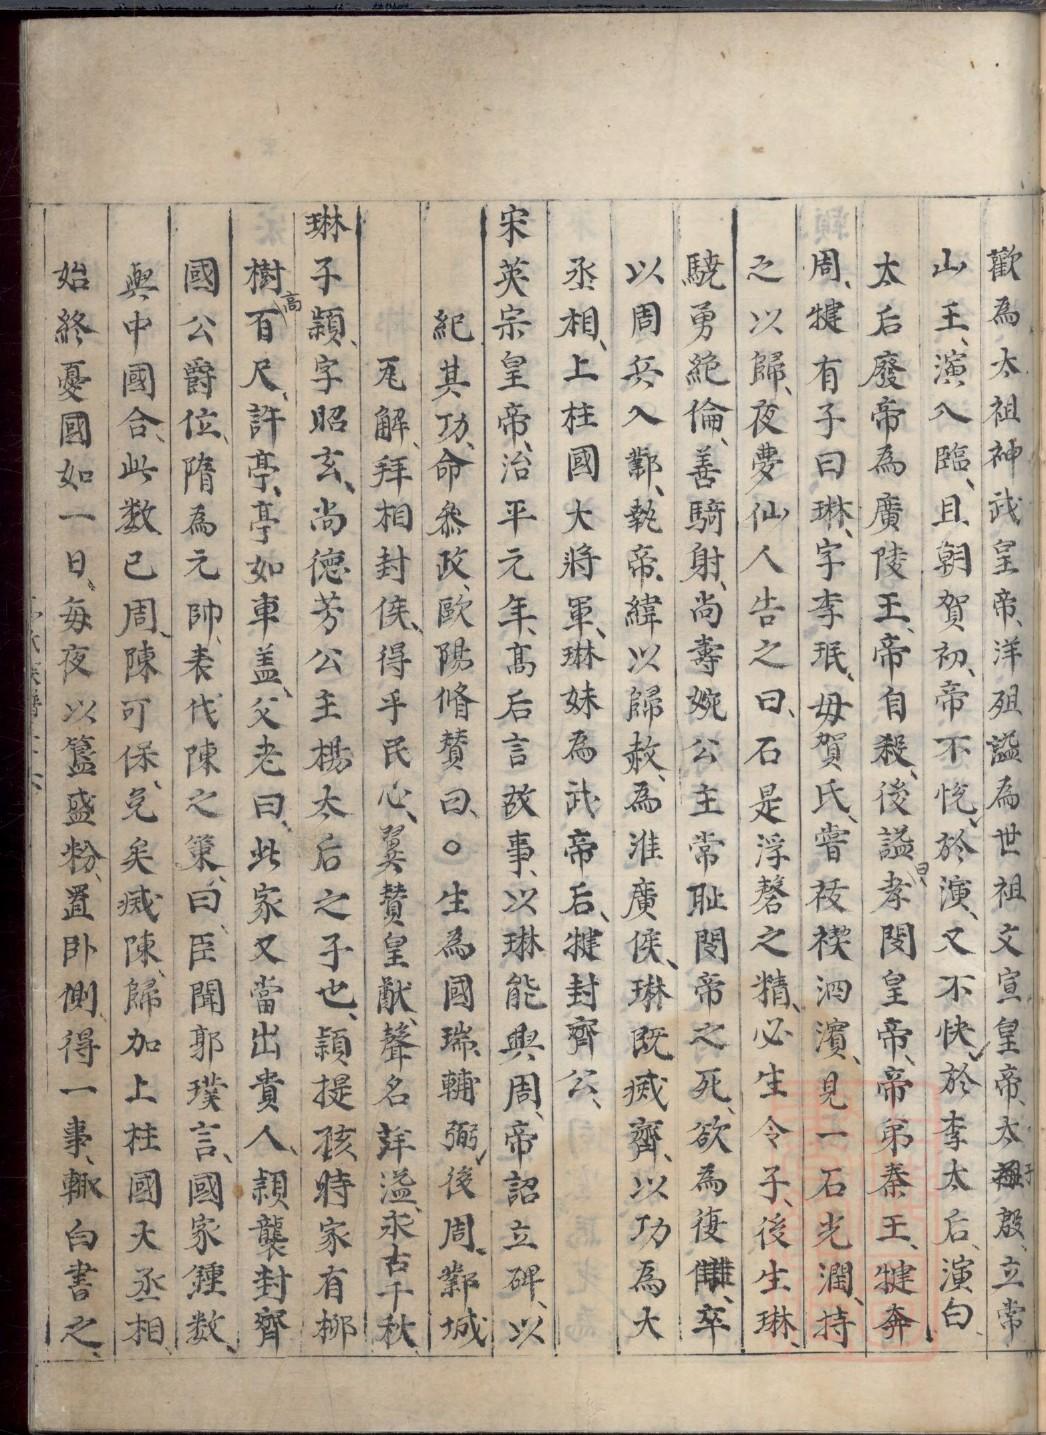 歡為太祖神武皇帝、洋殂謚為世祖文宣皇帝、太子殷、立常
山王、演入臨、且朝賀初、帝不悅、於演、又不快、於李太后、演白、
太后廢帝為廣陵王、帝自殺、後謚曰孝閔皇帝、帝弟秦王、犍奔
周、犍有子曰琳、字季珉、母賀氏、嘗祓禊泗濱、見一石光潤、持
之以歸、夜夢仙人告之曰、石是浮磬之精、必生令子、後生琳、
驍勇絕倫、善騎射、尚壽婉公主常耻閔帝之死、欲為復讎、卒
以周兵入鄴、執帝、緯以歸赦、為淮廣侯、琳既滅齊、以功為大
丞相、上柱國大將軍、琳妹為武帝后、犍封齊公、
宋英宗皇帝、治平元年、高后言故事、以琳能興周、帝詔立碑、以
紀其功、命叅政、歐陽脩贊曰、○生為國瑞、輔弼、後周、鄴城
瓦解、拜相封侯、得乎民心、翼贊皇猷、聲名洋溢、永古千秋、
琳子熲、字昭玄、尚德芳公主楊太后之子也、熲提孩時家有柳
樹高百尺、許亭、亭如車盖、父老曰、此家又當出貴人、熲襲封齊
國公爵位、隋為元帥、表伐陳之策、曰、臣聞郭璞言、國家鍾數、
與中國合、此数已周、陳可保、克矣、滅陳、歸加上柱國大丞相、
始終憂國如一日、每夜以簋盛粉、置卧側、得一事、輙白書之、